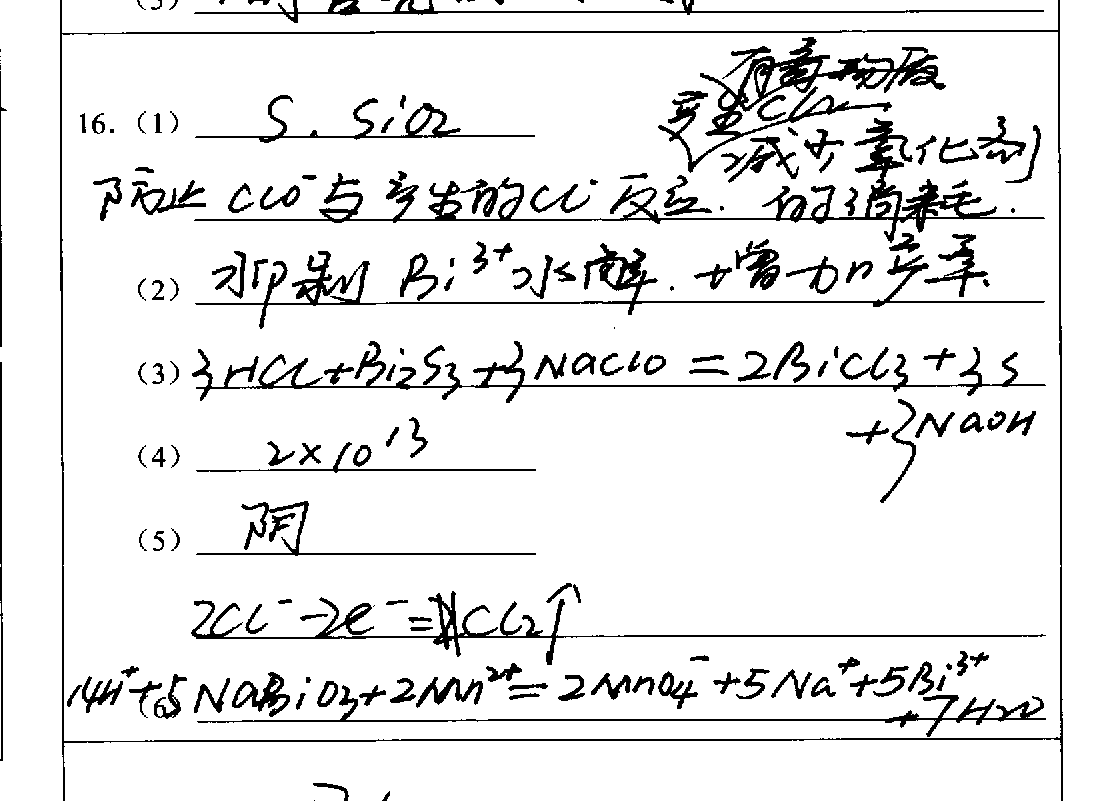 16.（1） S. SiO2
产生有毒物质
Cl2
减少氧化剂
防止 ClO⁻ 与产生的Cl⁻反应. 的消耗.
（2） 抑制 Bi³⁺水解. 增加产率.
（3） 3HCl+Bi2S3+3NaClO=2BiCl3+3S
+3NaOH
（4） 2×10¹³
（5） 阴
2Cl⁻-2e⁻=Cl2↑
（6） 14H⁺+5NaBiO3+2Mn²⁺=2MnO4⁻+5Na⁺+5Bi³⁺
+7H2O